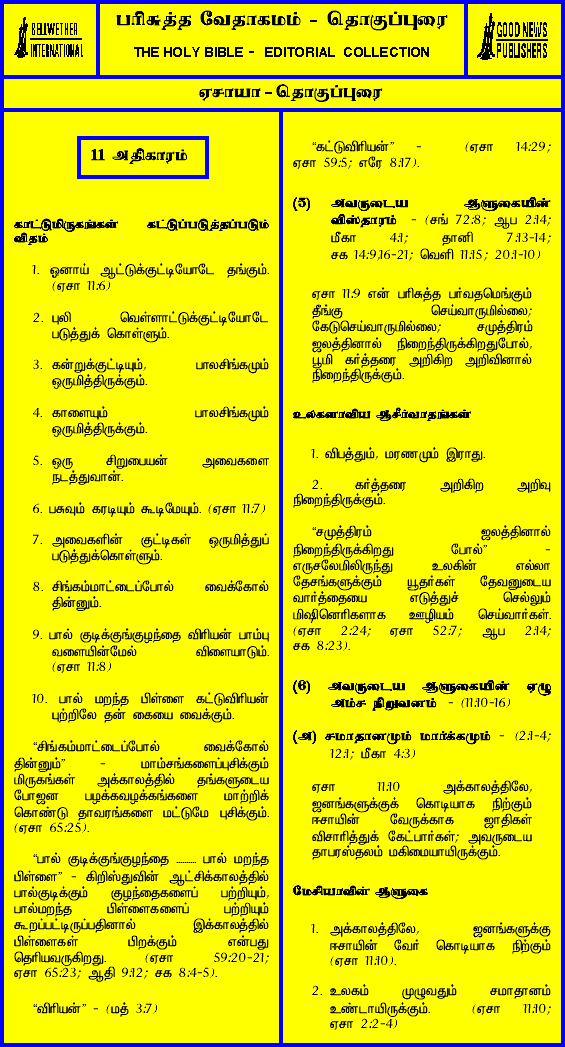 BELLWETHER
INTERNATIONAL
பரிசுத்த வேதாகமம் - தொகுப்புரை
THE HOLY BIBLE - EDITORIAL COLLECTION
GOOD NEWS
PUBLISHERS
ஏசாயா - தொகுப்புரை
11 அதிகாரம்
காட்டுமிருகங்கள் கட்டுப்படுத்தப்படும்
விதம்
1. ஓனாய் ஆட்டுக்குட்டியோடே தங்கும்.
(ஏசா 11:6)
2. புலி வெள்ளாட்டுக்குட்டியோடே
படுத்துக் கொள்ளும்.
3. கன்றுக்குட்டியும், பாலசிங்கமும்
ஒருமித்திருக்கும்.
4. காளையும் பாலசிங்கமும்
ஒருமித்திருக்கும்.
5. ஒரு சிறுபையன் அவைகளை
நடத்துவான்.
6. பசுவும் கரடியும் கூடிமேயும். (ஏசா 11:7)
7. அவைகளின் குட்டிகள் ஒருமித்துப்
படுத்துக்கொள்ளும்.
8. சிங்கம்மாட்டைப்போல் வைக்கோல்
தின்னும்.
9. பால் குடிக்குங்குழந்தை விரியன் பாம்பு
வளையின்மேல் விளையாடும்.
(ஏசா 11:8)
10. பால் மறந்த பிள்ளை கட்டுவிரியன்
புற்றிலே தன் கையை வைக்கும்.
“சிங்கம்மாட்டைப்போல் வைக்கோல்
தின்னும்” - மாம்சங்களைப்புசிக்கும்
மிருகங்கள் அக்காலத்தில் தங்களுடைய
போஜன பழக்கவழக்கங்களை மாற்றிக்
கொண்டு தாவரங்களை மட்டுமே புசிக்கும்.
(ஏசா 65:25).
“பால் குடிக்குங்குழந்தை ......... பால் மறந்த
பிள்ளை” - கிறிஸ்துவின் ஆட்சிக்காலத்தில்
பால்குடிக்கும் குழந்தைகளைப் பற்றியும்,
பால்மறந்த பிள்ளைகளைப் பற்றியும்
கூறப்பட்டிருப்பதினால் இக்காலத்தில்
பிள்ளைகள் பிறக்கும் என்பது
தெரியவருகிறது. (ஏசா 59:20-21;
ஏசா 65:23; ஆதி 9:12; சக 8:4-5).
“விரியன்” - (மத் 3:7)
“கட்டுவிரியன்” - (ஏசா 14:29;
ஏசா 59:5; எரே 8:17).
(5) அவருடைய ஆளுகையின்
விஸ்தாரம் - (சங் 72:8; ஆப 2:14;
மீகா 4:1; தானி 7:13-14;
சக 14:9,16-21; வெளி 11:15; 20:1-10)
ஏசா 11:9 என் பரிசுத்த பர்வதமெங்கும்
தீங்கு செய்வாருமில்லை;
கேடுசெய்வாருமில்லை; சமுத்திரம்
ஜலத்தினால் நிறைந்திருக்கிறதுபோல்,
பூமி கர்த்தரை அறிகிற அறிவினால்
நிறைந்திருக்கும்.
உலகளாவிய ஆசீர்வாதங்கள்
1. விபத்தும், மரணமும் இராது.
2. கர்த்தரை அறிகிற அறிவு
நிறைந்திருக்கும்.
“சமுத்திரம் ஜலத்தினால்
நிறைந்திருக்கிறது போல்” -
எருசலேமிலிருந்து உலகின் எல்லா
தேசங்களுக்கும் யூதர்கள் தேவனுடைய
வார்த்தையை எடுத்துச் செல்லும்
மிஷினெரிகளாக ஊழியம் செய்வார்கள்.
(ஏசா 2:24; ஏசா 52:7; ஆப 2:14;
சக 8:23).
(6) அவருடைய ஆளுகையின் ஏழு
அம்ச நிறுவனம் - (11:10-16)
(அ) சமாதானமும் மார்க்கமும் - (2:1-4;
12:1; மீகா 4:3)
ஏசா 11:10 அக்காலத்திலே,
ஜனங்களுக்குக் கொடியாக நிற்கும்
ஈசாயின் வேருக்காக ஜாதிகள்
விசாரித்துக் கேட்பார்கள்; அவருடைய
தாபரஸ்தலம் மகிமையாயிருக்கும்.
மேசியாவின் ஆளுகை
1. அக்காலத்திலே, ஜனங்களுக்கு
ஈசாயின் வேர் கொடியாக நிற்கும்
(ஏசா 11:10).
2. உலகம் முழுவதும் சமாதானம்
உண்டாயிருக்கும். (ஏசா 11:10;
ஏசா 2:2-4)